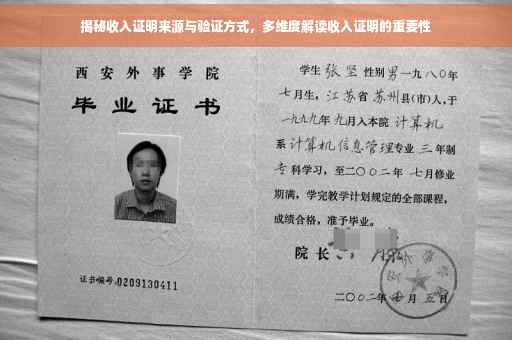 揭秘收入证明来源与验证方式，多维度解读收入证明的重要性
西安外事学院
毕业证书
证书编号:0209130411
学生张坚性别男一九八〇年
七月生，江苏省苏州县(市)人,于
一九九九年九月入本院计算机
系计算机信息管理专业三年制
专科学习，至二〇〇二年七月修业
期满，学完教学计划规定的全部课程，
成绩合格，准予毕业。
院长
二〇〇二年七月五日